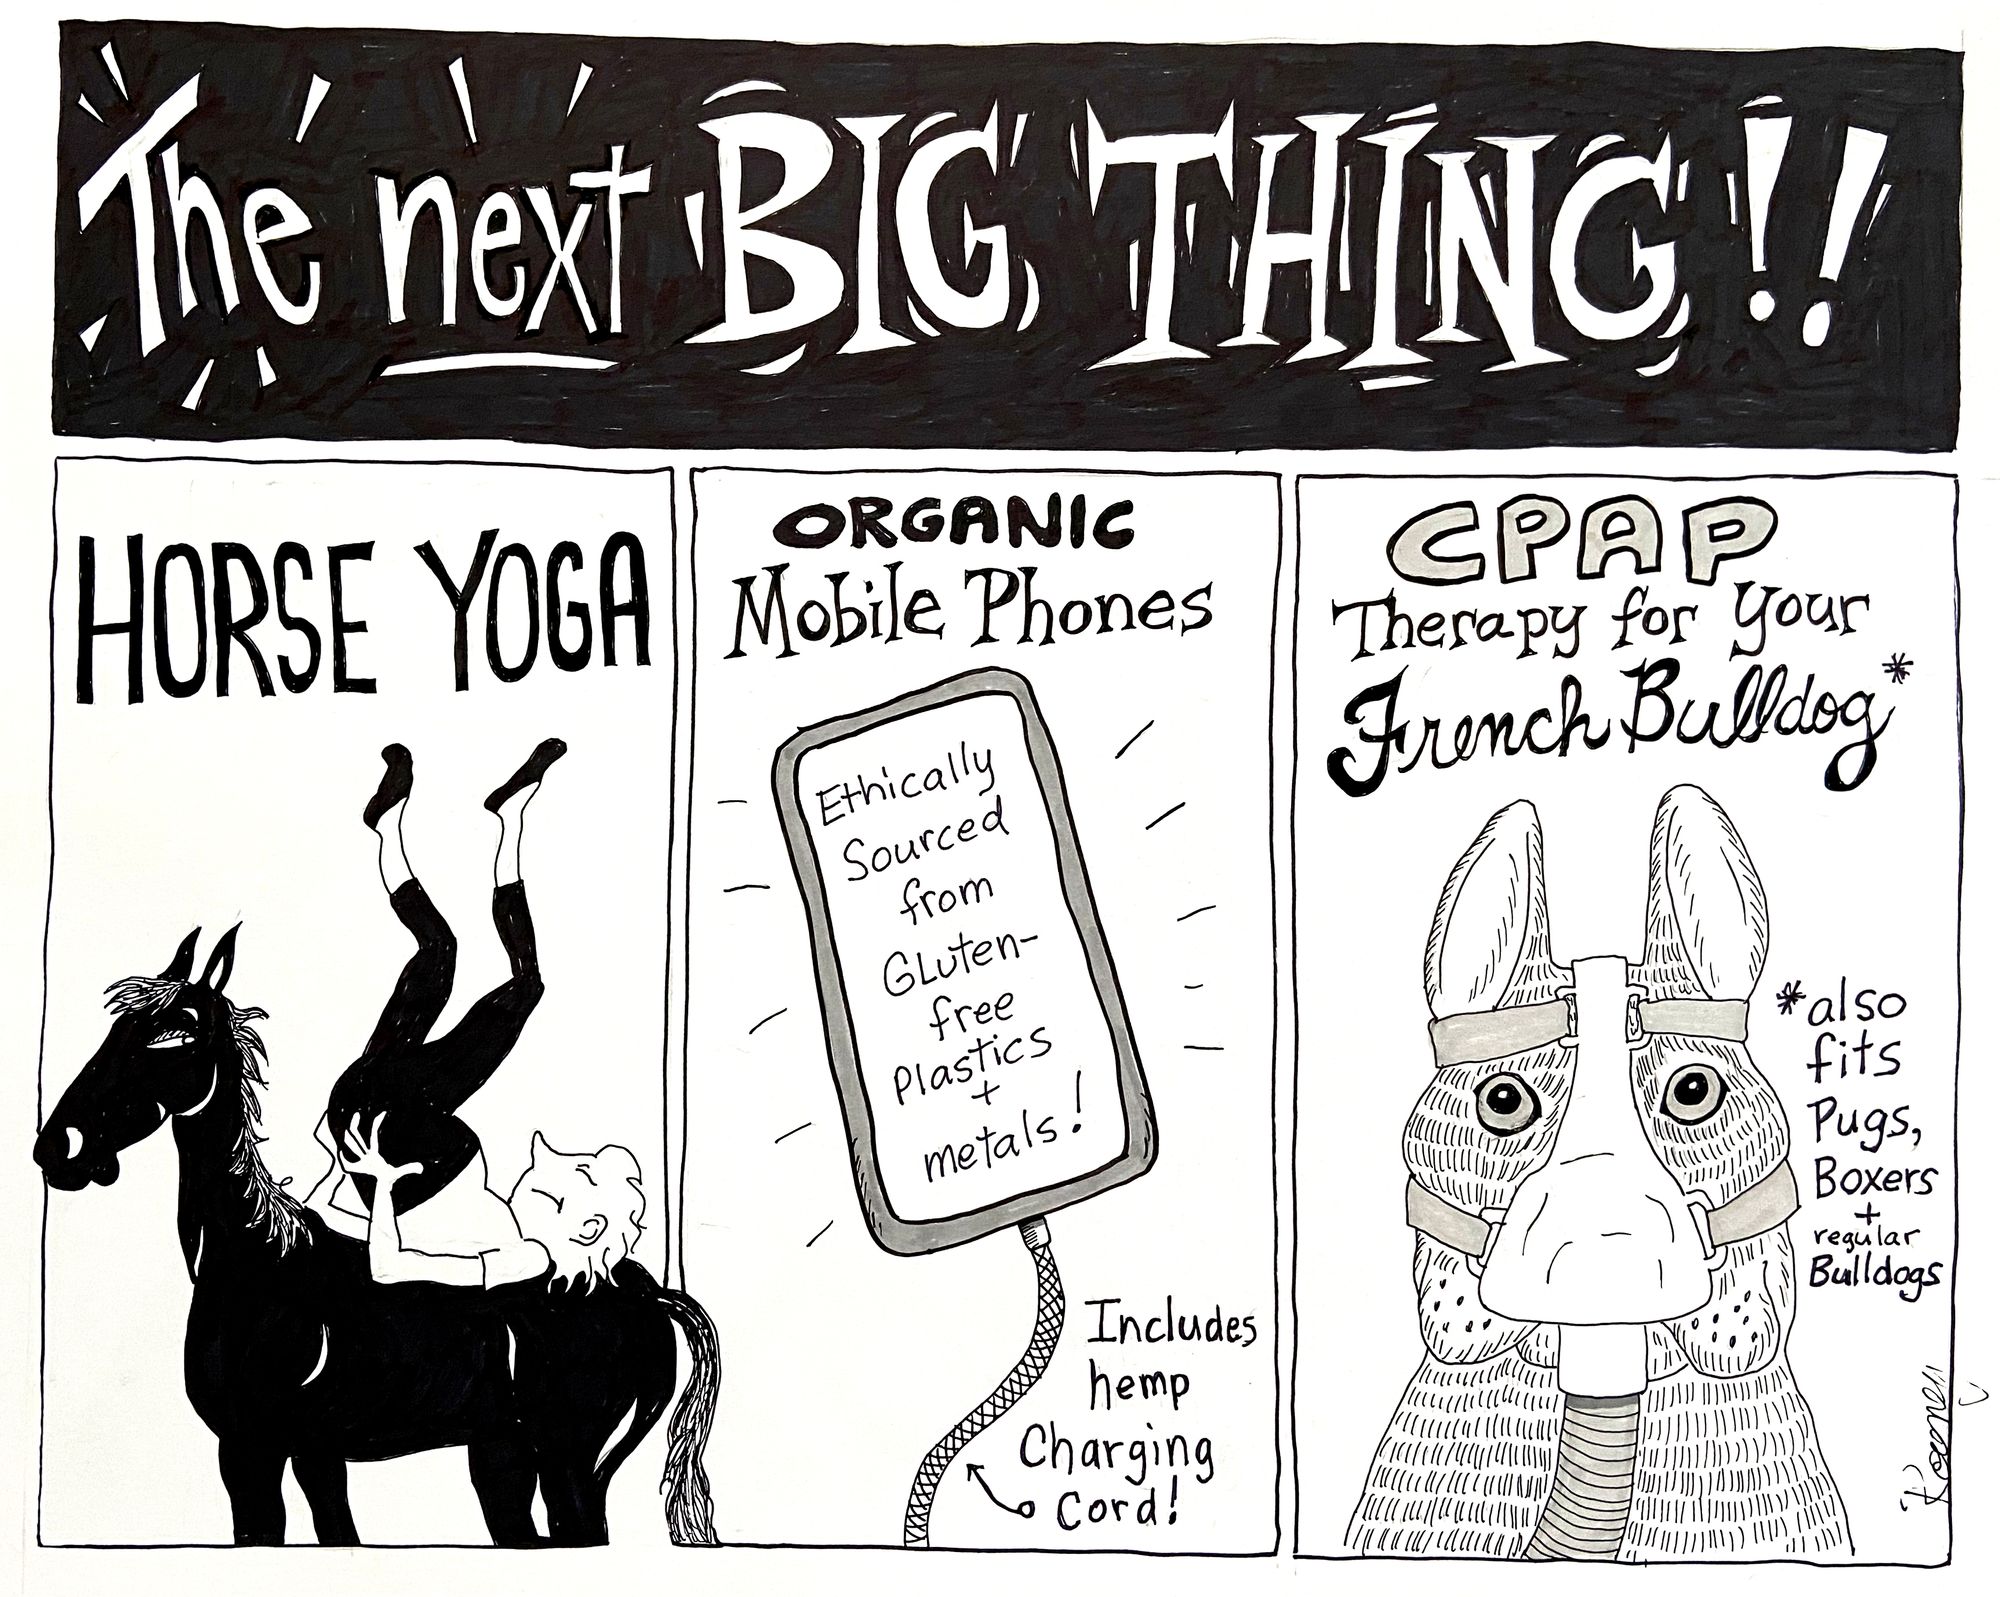 The next BIG THING!!
HORSE YOGA
ORGANIC
Mobile Phones
Ethically
Sourced
from
Gluten-
free
Plastics
+
metals!
Includes
hemp
Charging
Cord!
CPAP
Therapy for your
French Bulldog*
*also
fits
Pugs,
Boxers
+
regular
Bulldogs